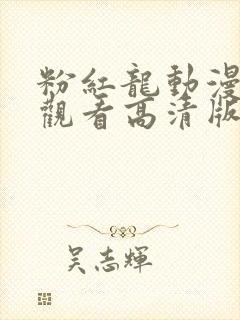 粉紅龍動漫
觀看高清版
吴志輝